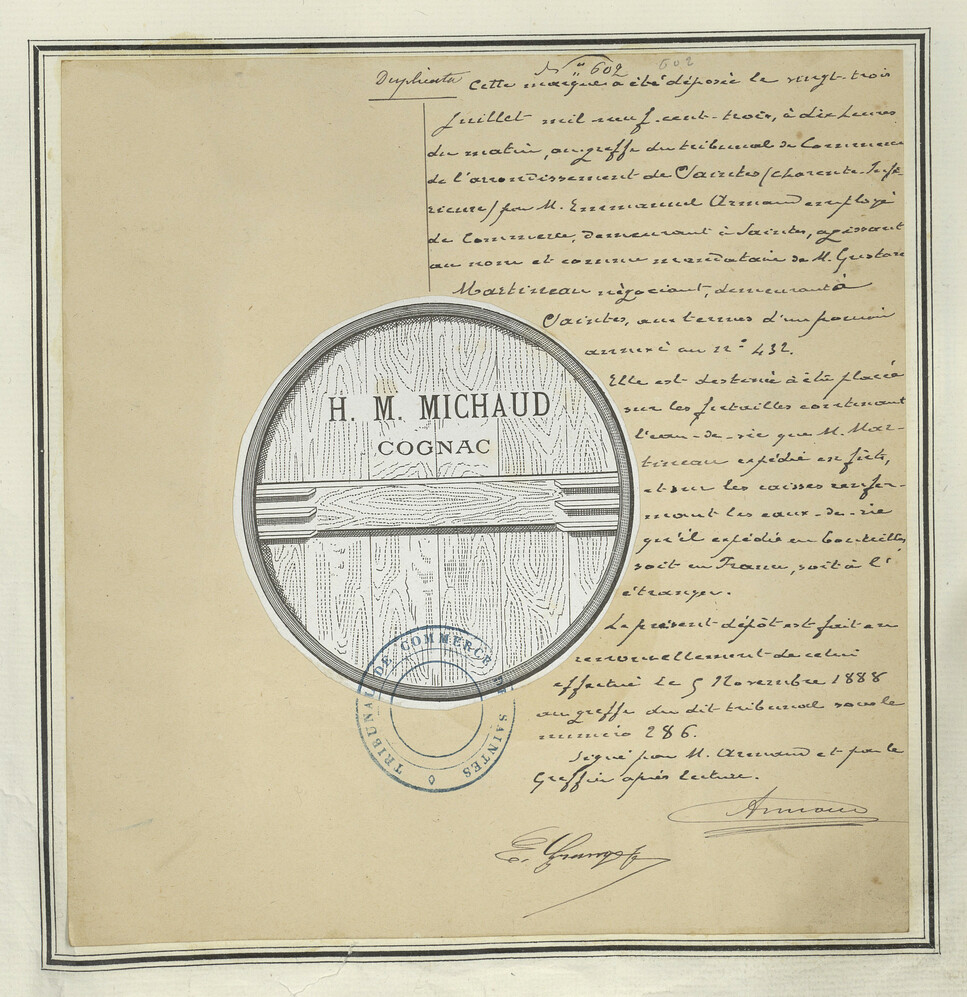 Duplicata
N° 602
602
Cette marque a été déposée le vingt-trois
Juillet mil neuf cent-trois, à dix heures
du matin, au greffe du tribunal de Commerce
de l'arrondissement de Saintes (Charente-Infé-
rieure) par M. Emmanuel Armand employé
de Commerce, demeurant à Saintes, agissant
au nom et comme mandataire de M. Gustave
Martineau négociant, demeurant à
Saintes, aux termes d'un pouvoir
annexé au n° 432.
Elle est destinée à être placée
sur les futailles contenant
l'eau-de-vie que M. Mar-
tineau expédie en fûts,
et sur les caisses renfer-
mant les eaux-de-vie
qu'il expédie en bouteilles
soit en France, soit à l'
étranger.
Le présent dépôt est fait en
renouvellement de celui
effectué le 5 Novembre 1888
au greffe du dit tribunal sous le
numéro 286.
Signé par M. Armand et par le
Greffier après lecture.
Armand
H. M. MICHAUD
COGNAC
TRIBUNAL DE COMMERCE DE SAINTES